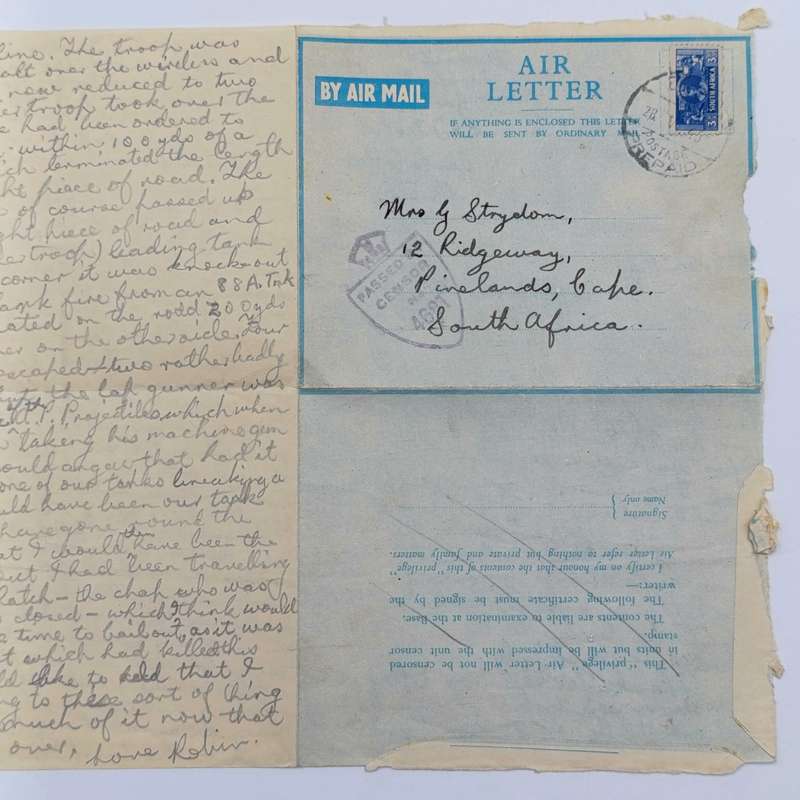 line. The troop was
alt over the wireless and
now reduced to two
er troop took over the
e had been ordered to
within 100 yds of a
ich terminated the length
ght piece of road. The
of course passed up
ght piece of road and
er troop) leading tank
corner it was knock-out
tank fire from an 88 A. Tnk
ated on the rodd 200 yds
er on the other side. Four
escaped two rather badly
the lap gunner was
A.P. Projectiles which when
taking his machine gun
ould argue that had it
one of our tanks breaking a
uld have been our tank
have gone round the
at I would then have been the
but I had been travelling
hatch – the chap who was
closed – which I think would
e time to bail out, as it was
t which had killed this
ld like to add that I
ng to these sort of thing
much of it now that
over, Love Robin.
BY AIR MAIL
AIR
LETTER
IF ANYTHING IS ENCLOSED THIS LETTER
WILL BE SENT BY ORDINARY MAIL
SOUTH AFRICA
PREPAID
Mrs G Strydom,
12 Ridgeway,
Pinelands, Cape.
South Africa.
PASSED BY
CENSOR
No
4697
This "privilege" Air Letter will not be censored
in units but will be impressed with the unit censor
stamp.
The contents are liable to examination at the Base.
The following certificate must be signed by the
writer:—
I certify on my honour that the contents of this "privilege"
Air Letter refer to nothing but private and family matters.
Signature
Name only